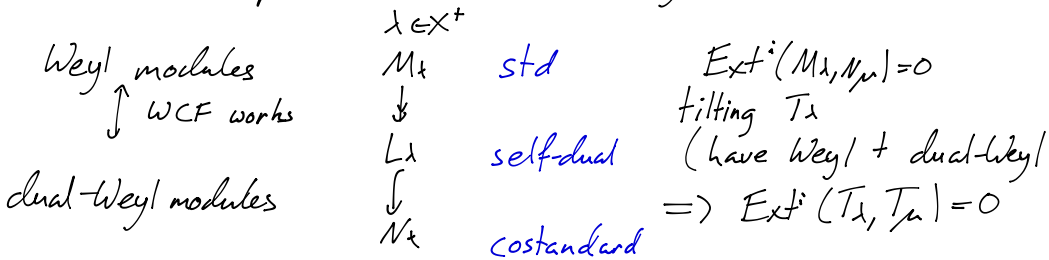 λ ∈ X⁺
Weyl modules M_λ std Extⁱ(M_λ, N_μ) = 0
↕ WCF works ↓ tilting T_λ
L_λ self-dual (have Weyl + dual-Weyl
dual-Weyl modules ↓ => Extⁱ(T_λ, T_μ) = 0
N_λ costandard